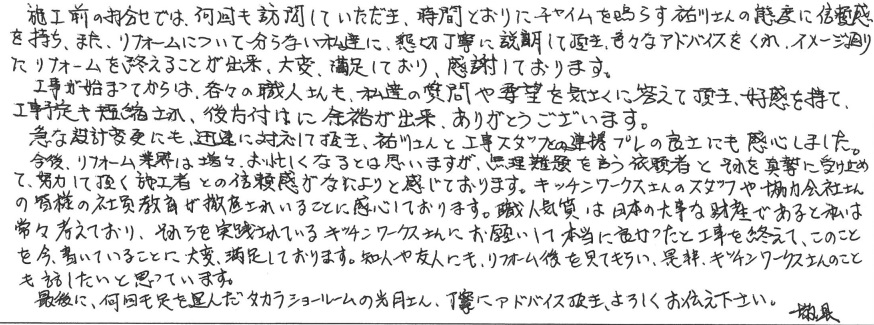 施工前のお打合せでは、何回も訪問していただき、時間どおりにチャイムを鳴らす祐川さんの態度に信頼感
を持ち、また、リフォームについて分らない私達に、懇切丁寧に説明して頂き、色々なアドバイスをくれ、イメージ通り
にリフォームを終えることが出来、大変、満足しており、感謝しております。
工事が始まってからは、各々の職人さんも、私達の質問や要望を気さくに答えて頂き、好感を持て、
工事予定も短縮され、後片付けに余裕が出来、ありがとうございます。
急な設計変更にも、迅速に対応して頂き、祐川さんと工事スタッフとの連携プレーの良さにも感心しました。
今後、リフォーム業界は増々、お忙しくなるとは思いますが、無理難題を言う依頼者とそれを真摯に受け止め
て、努力して頂く施工者との信頼感がなによりと感じております。キッチンワークスさんのスタッフや協力会社さん
の皆様の社員教育が徹底されいることに感心しております。職人気質は日本の大事な財産であると私は
常々考えており、それらを実践されているキッチンワークスさんにお願いして本当に良かったと工事を終えて、このこと
を今、書いていることに大変、満足しております。知人や友人にも、リフォーム後を見てもらい、是非、キッチンワークスさんのこと
も話したいと思っています。
最後に、何回も足を運んだタカラショールームの光月さん、丁寧にアドバイス頂き、よろしくお伝え下さい。